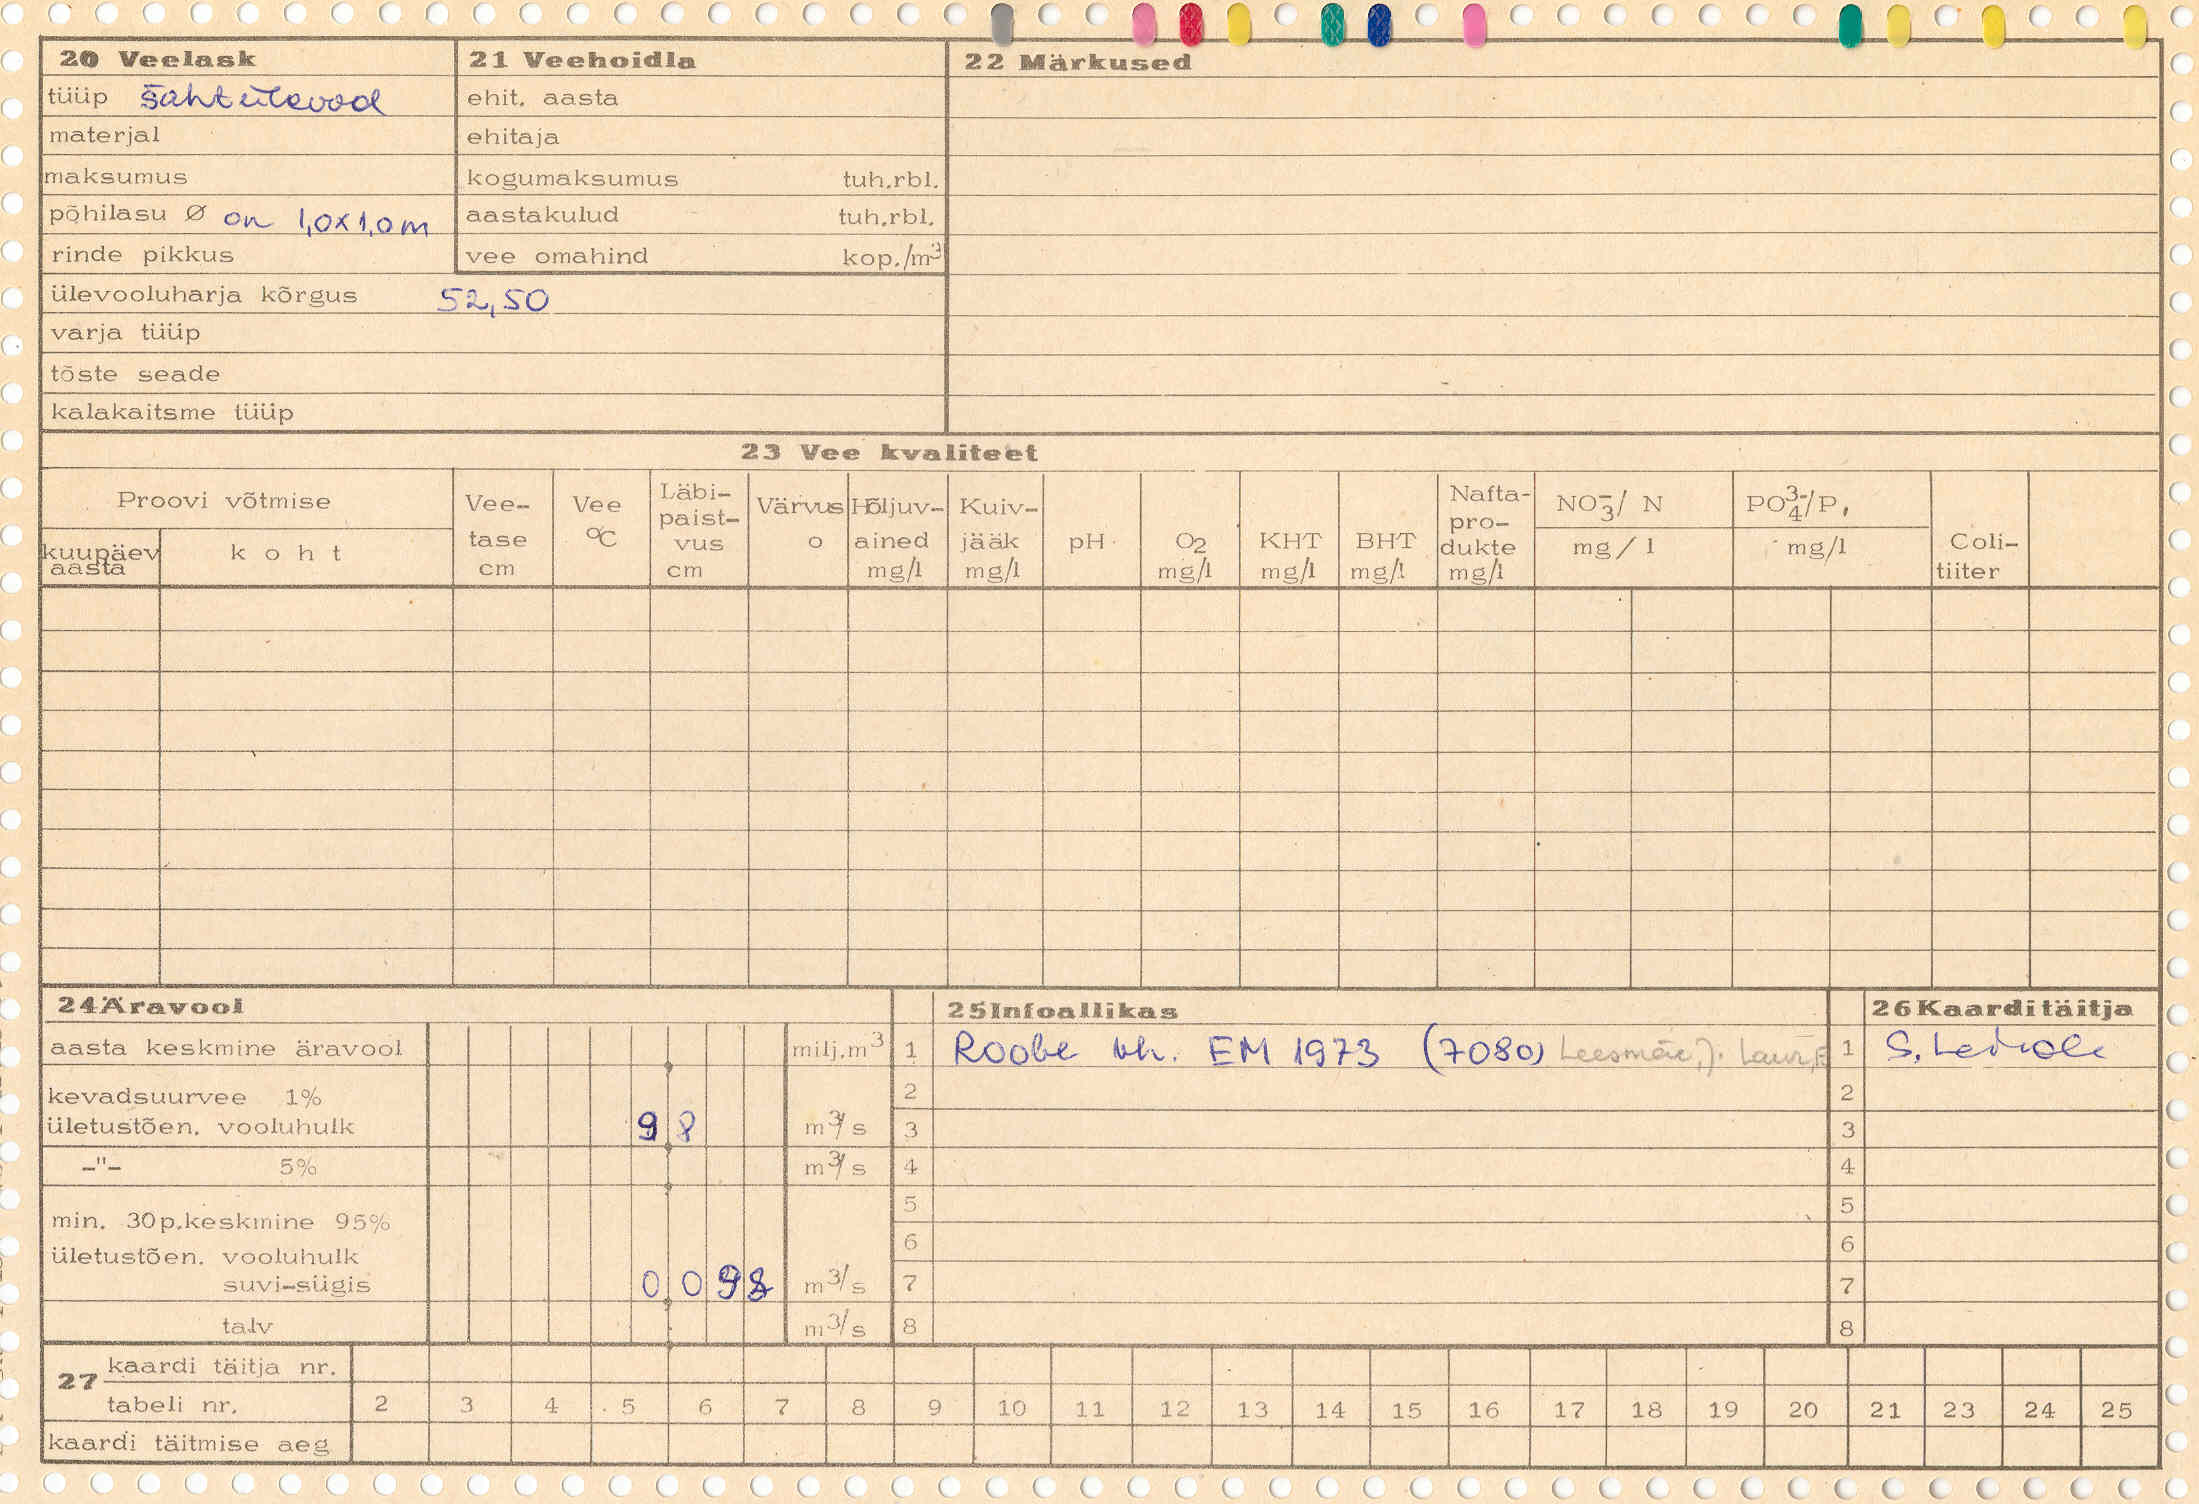 20 Veelask
tüüp šahtülevool
materjal
maksumus
põhilasu Ø on 1,0x1,0m
rinde pikkus
ülevooluharja kõrgus 52,50
varja tüüp
tõste seade
kalakaitsme tüüp
21 Veehoidla
ehit. aasta
ehitaja
kogumaksumus tuh.rbl.
aastakulud tuh.rbl.
vee omahind kop./m³
22 Märkused
23 Vee kvaliteet
Proovi võtmise
kuupäev aasta
koht
Vee-
tase
cm
Vee
°C
Läbi-
paist-
vus
cm
Värvus
o
Hõljuv-
ained
mg/l
Kuiv-
jääk
mg/l
pH
O2
mg/l
KHT
mg/l
BHT
mg/l
Nafta-
pro-
dukte
mg/l
NO₃⁻/ N
mg/l
PO₄³⁻/P,
mg/l
Coli-
tiiter
24 Äravool
aasta keskmine äravool milj.m³
kevadsuurvee 1%
ületustõen. vooluhulk 9 8 m³/s
-"- 5% m³/s
min. 30p.keskmine 95%
ületustõen. vooluhulk
suvi-sügis 0 0 9 8 m³/s
talv m³/s
25 Infoallikas
1 Roobe vh. EM 1973 (7080) Leesmäe, J. Laur, E
2
3
4
5
6
7
8
26 Kaarditäitja
1 S.
2
3
4
5
6
7
8
27
kaardi täitja nr.
tabeli nr. 2 3 4 5 6 7 8 9 10 11 12 13 14 15 16 17 18 19 20 21 23 24 25
kaardi täitmise aeg